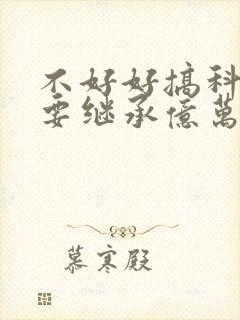 不好好搞科
要继承億萬
慕寒殿